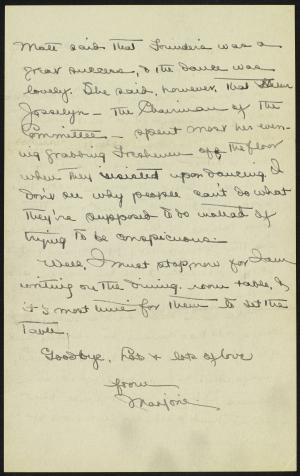 Matt said that Founders was a
great success, & the dance was
lovely. She said, however, that
Josselyn - the Chairman of the
Committee - spent most her even-
ing grabbing Freshmen off the floor
when they insisted upon dancing. I
don't see why people can't do what
they're supposed to do instead of
trying to be conspicuous.
Well, I must stop now for I am
writing on the dining-room table, &
it's most time for them to set the
table.
Goodbye. Lots & lots of love
from
Marjorie.